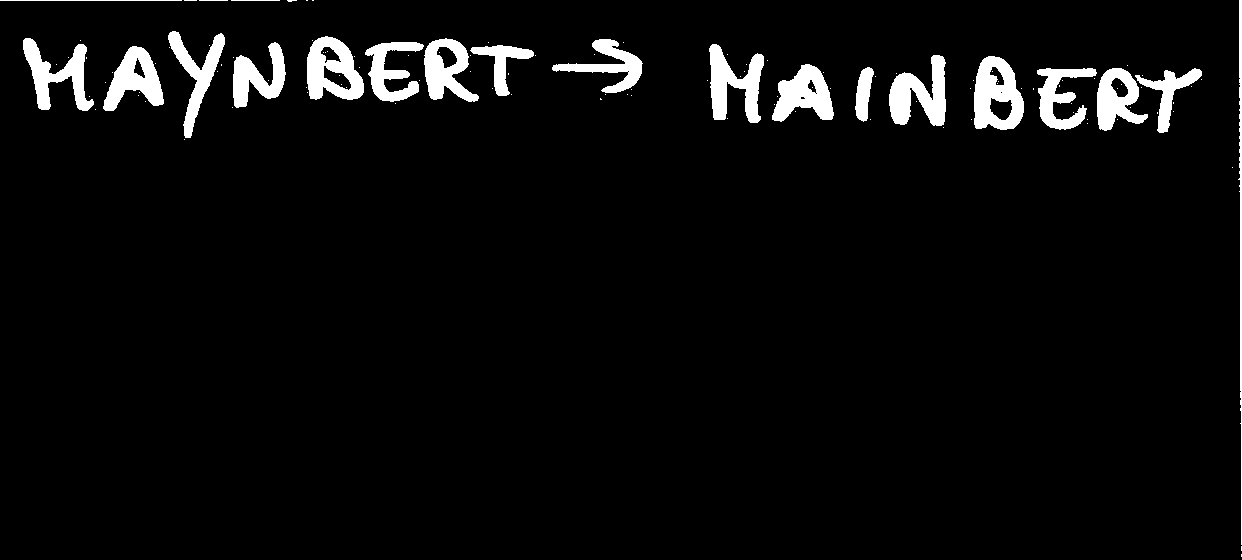 MAYNBERT → MAINBERT